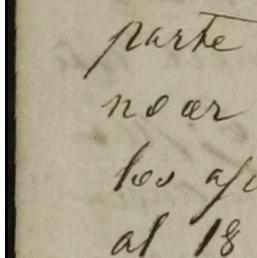 parte
no ar
los
al 18